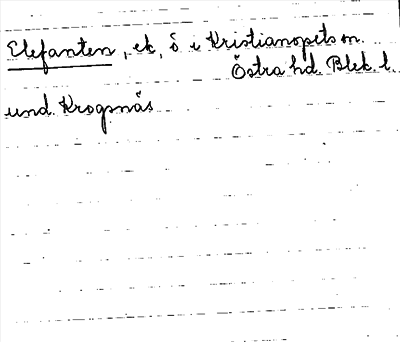 Elefanten, ek, ö i Kristianopels sn.
Östra hd Blek. l.
und. Krogsnäs